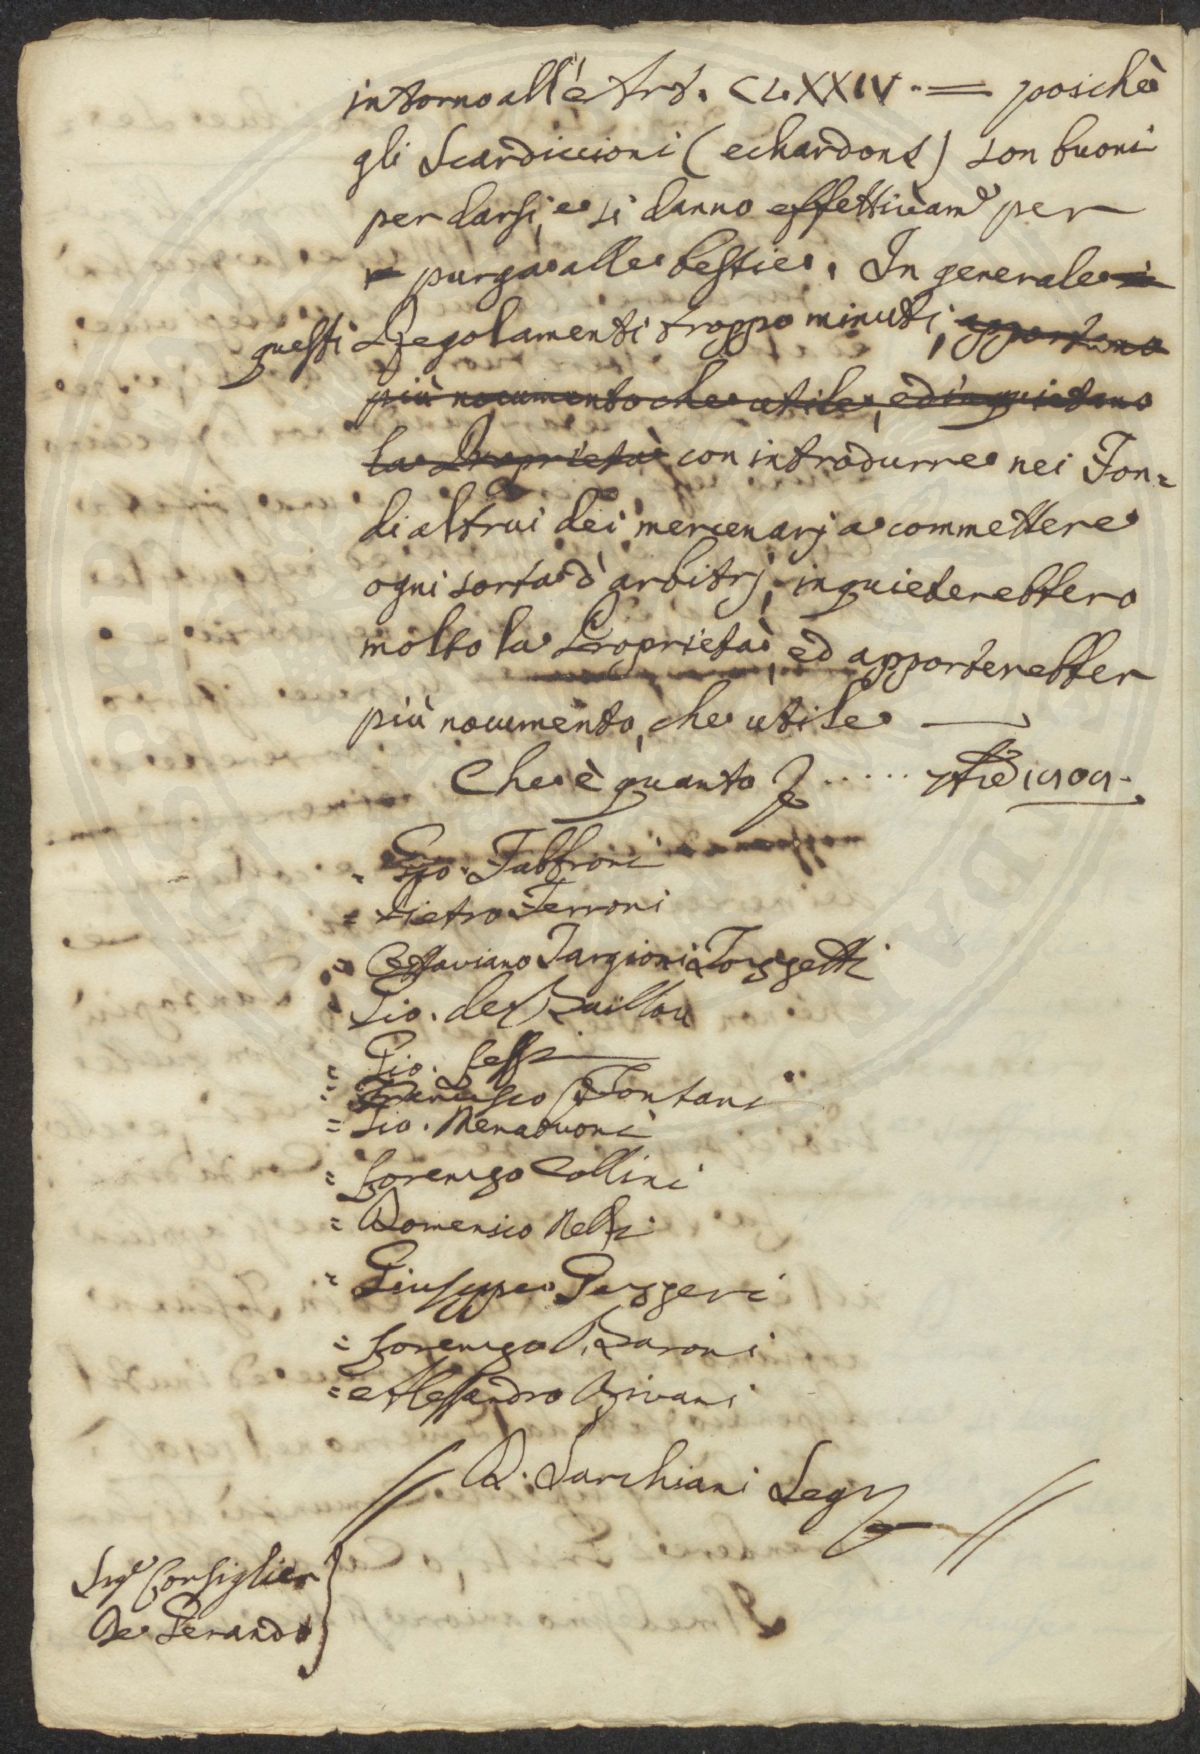 intorno all'Art. CLXXIV. = poichè
gli Scardiccioni (echardons) son buoni
per darsi, e si danno effettivam.e per
purga alle bestie. In generale
questi Regolamenti troppo minuti, apportano
più nocumento che utile, ed inquietano
la Proprietà con introdurre nei Fon=
di altrui dei mercenarj a commettere
ogni sorta d'arbitrj, inquieterebbero
molto la Proprietà, ed apporterebber
più nocumento, che utile
Che è quanto
= Gio. Fabbroni
= Pietro Ferroni
= Ottaviano Targioni Tozzetti
= Gio. de Baillou
= Gio. Lessi
= Francesco Fontani
= Gio. Menabuoni
= Lorenzo Collini
= Domenico Nelli
= Giuseppe Pezzeri
= Lorenzo Baroni
= Alessandro Rivani
// D. Sarchiani Seg.rio //
Sig.e Consiglier
De Gerando